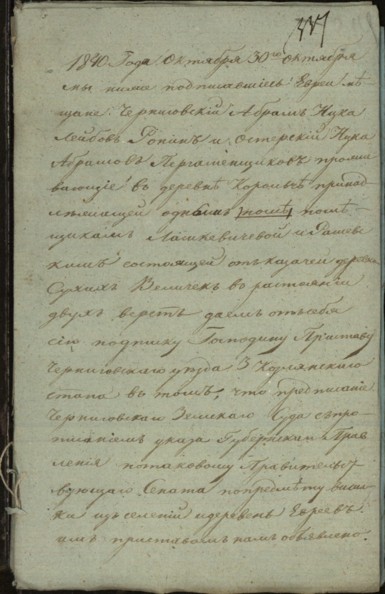 1840 Года Октября 30го Октября
мы ниже подписавшиеся Евреи мѣ
щане Черниговскій Абрамъ Нуха
Лейбовъ Ропинъ и Остерскій Нуха
Абрамовъ Пергаменщиковъ прожи
вающіе въ деревнѣ принад
лежащей помѣ
щикамъ Лашкевичевой и Рашев
скимъ состоящей отъ казачей деревни
Сухихъ Величекъ въ растояніи
двухъ верстъ даемъ отъ себя
сію подписку Господину Приставу
Черниговскаго уѣзда 3
стана въ томъ, что предписаніе
Черниговскаго Земскаго Суда съ про
писаніемъ указа Губернскаго Прав
ленія потаковому Правительст
вующаго Сената попредмѣту высыл
ки изъ селеній идеревень Евреевъ
имъ приставомъ намъ объявлено.